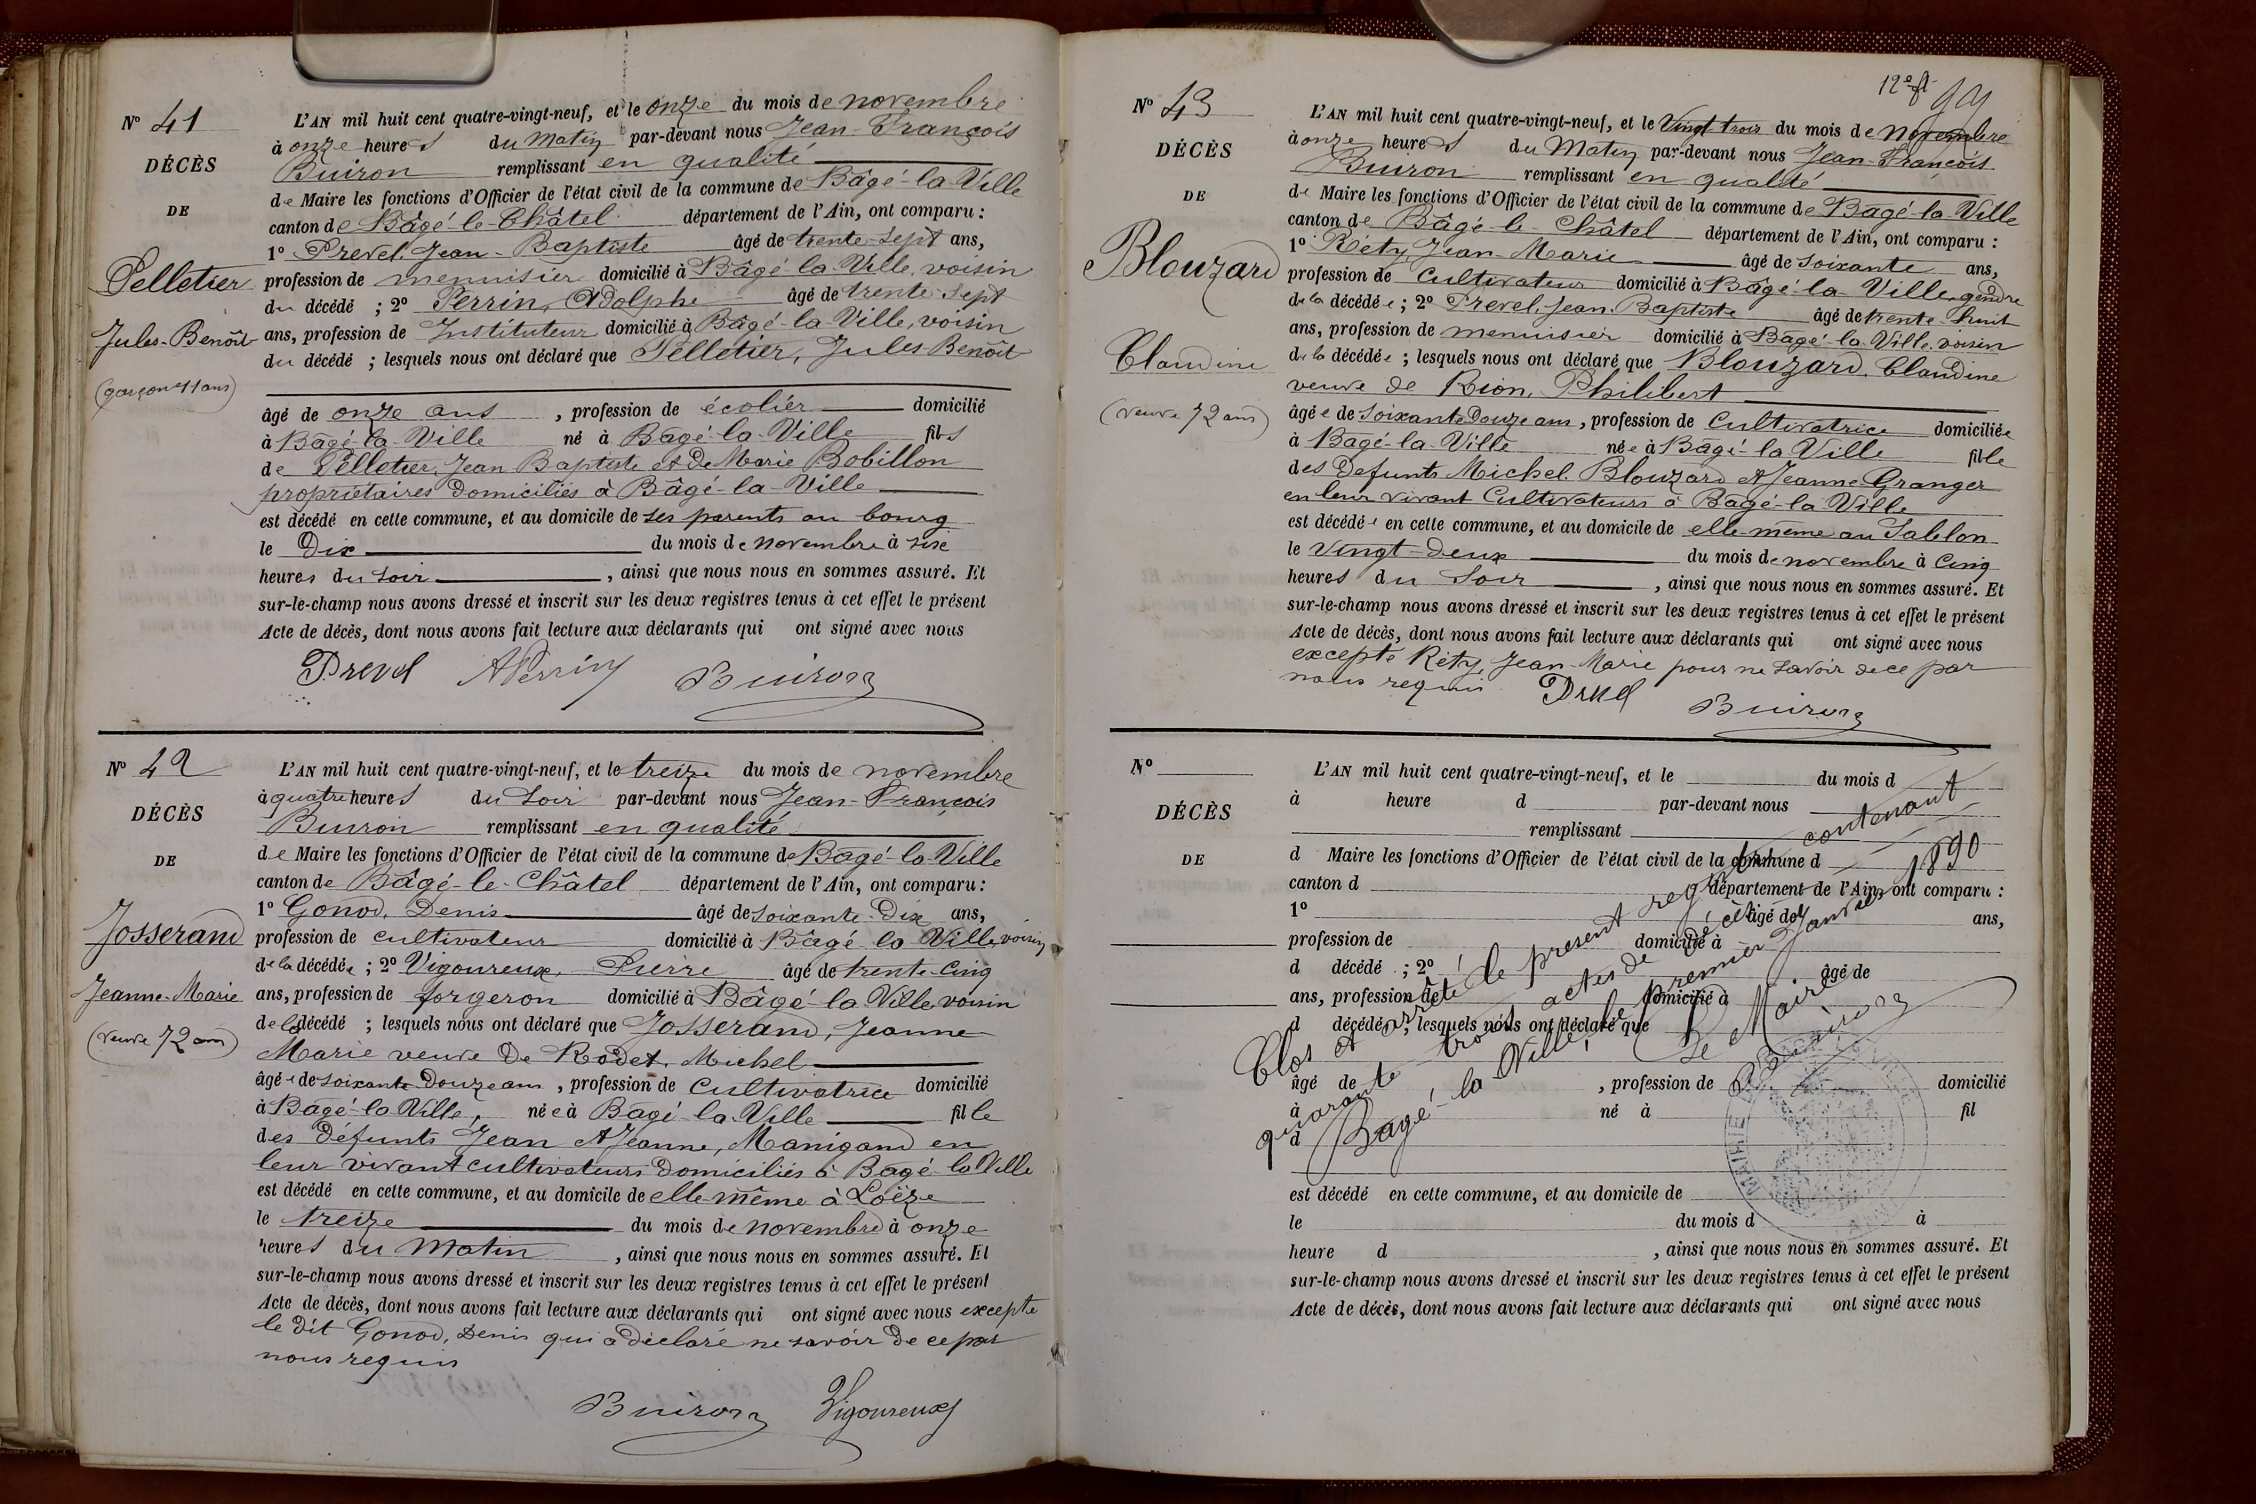 N° 41
DÉCÈS
DE
Pelletier
Jules-Benoît
(garçon 11 ans)
L'AN mil huit cent quatre-vingt-neuf, et le onze du mois de novembre
à onze heures du matin par-devant nous Jean-François
Buiron remplissant en qualité
de Maire les fonctions d'Officier de l'état civil de la commune de Bâgé-la-Ville
canton de Bâgé-le-Châtel département de l'Ain, ont comparu :
1° Prevel, Jean-Baptiste âgé de trente-sept ans,
profession de menuisier domicilié à Bâgé-la-Ville, voisin
du décédé ; 2° Perrin, Adolphe âgé de trente-sept
ans, profession de Instituteur domicilié à Bâgé-la-Ville, voisin
du décédé ; lesquels nous ont déclaré que Pelletier, Jules Benoît
âgé de onze ans , profession de écolier domicilié
à Bâgé-la-Ville né à Bâgé-la-Ville fils
de Pelletier, Jean Baptiste et de Marie Bobillon
propriétaires domiciliés à Bâgé-la-Ville
est décédé en cette commune, et au domicile de ses parents au bourg
le Dix du mois de novembre à six
heures du soir , ainsi que nous nous en sommes assuré. Et
sur-le-champ nous avons dressé et inscrit sur les deux registres tenus à cet effet le présent
Acte de décès, dont nous avons fait lecture aux déclarants qui ont signé avec nous
Prevel APerrin Buiron
N° 42
DÉCÈS
DE
Josserand
Jeanne-Marie
(veuve 72 ans)
L'AN mil huit cent quatre-vingt-neuf, et le treize du mois de novembre
à quatre heures du soir par-devant nous Jean-François
Buiron remplissant en qualité
de Maire les fonctions d'Officier de l'état civil de la commune de Bâgé-la-Ville
canton de Bâgé-le-Châtel département de l'Ain, ont comparu :
1° Gonod, Denis âgé de soixante-Dix ans,
profession de cultivateur domicilié à Bâgé la Ville, voisin
de la décédée ; 2° Vigoureux, Pierre âgé de trente-cinq
ans, profession de forgeron domicilié à Bâgé la Ville voisin
de la décédé ; lesquels nous ont déclaré que Josserand, Jeanne
Marie veuve de Rodet, Michel
âgée de soixante Douze ans , profession de cultivatrice domicilié
à Bâgé-la Ville, née à Bâgé-la-Ville fille
des défunts Jean et Jeanne, Manigand en
leur vivant cultivateurs domiciliés à Bagé-la Ville
est décédé en cette commune, et au domicile de elle-même à Loëze
le treize du mois de novembre à onze
heures du Matin , ainsi que nous nous en sommes assuré. Et
sur-le-champ nous avons dressé et inscrit sur les deux registres tenus à cet effet le présent
Acte de décès, dont nous avons fait lecture aux déclarants qui ont signé avec nous excepte
le dit Gonod, Denis qui a déclaré ne savoir de ce par
nous requis
Buiron Vigoureux
12e ft 99
N° 43
DÉCÈS
DE
Blouzard
Claudine
(veuve 72 ans)
L'AN mil huit cent quatre-vingt-neuf, et le Vingt-trois du mois de Novembre
à onze heures du Matin par-devant nous Jean-François
Buiron remplissant en qualité
de Maire les fonctions d'Officier de l'état civil de la commune de Bâgé-la-Ville
canton de Bâgé-le-Châtel département de l'Ain, ont comparu :
1° Réty, Jean-Marie âgé de soixante ans,
profession de cultivateur domicilié à Bâgé-la-Ville, gendre
de la décédée ; 2° Prevel, Jean-Baptiste âgé de trente-huit
ans, profession de menuisier domicilié à Bâgé-la-Ville, voisin
de la décédée ; lesquels nous ont déclaré que Blouzard, Claudine
veuve de Rion, Philibert
âgée de soixante Douze ans , profession de cultivatrice domiciliée
à Bagé-la-Ville née à Bâgé-la Ville fille
des Defunts Michel Blouzard et Jeanne Granger
en leur vivant Cultivateurs à Bagé-la Ville
est décédée en cette commune, et au domicile de elle-même au Sablon
le Vingt-deux du mois de novembre à cinq
heures du Soir , ainsi que nous nous en sommes assuré. Et
sur-le-champ nous avons dressé et inscrit sur les deux registres tenus à cet effet le présent
Acte de décès, dont nous avons fait lecture aux déclarants qui ont signé avec nous
excepté Réty, Jean-Marie pour ne savoir de ce par
nous requis Prevel Buiron
N°
DÉCÈS
DE
L'AN mil huit cent quatre-vingt-neuf, et le du mois d
à heure d par-devant nous
remplissant
d Maire les fonctions d'Officier de l'état civil de la commune d
canton d département de l'Ain, ont comparu :
1° âgé de ans,
profession de domicilié à
d décédé ; 2° âgé de
ans, profession de domicilié à
d décédé ; lesquels nous ont déclaré que
âgé de , profession de domicilié
à né à fil
d
est décédé en cette commune, et au domicile de
le du mois d à
heure d , ainsi que nous nous en sommes assuré. Et
sur-le-champ nous avons dressé et inscrit sur les deux registres tenus à cet effet le présent
Acte de décès, dont nous avons fait lecture aux déclarants qui ont signé avec nous
Clos et arrêté le present registre contenant
quarante trois actes de décès
Bagé-la Ville, le premier Janvier 1890
Le Maire
Buiron
MAIRIE